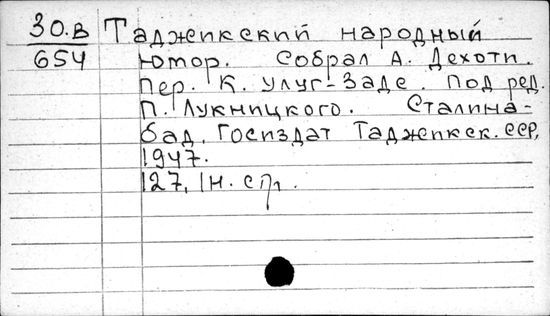 30.В Таджикский народный
654 юмор. Собрал А. Дехоти.
пер. К. Улуг-Заде. Под ред.
П. Лукницкого. Сталина-
бад, Госиздат Таджикск. ССР,
1947.
127, 1 н. стр.